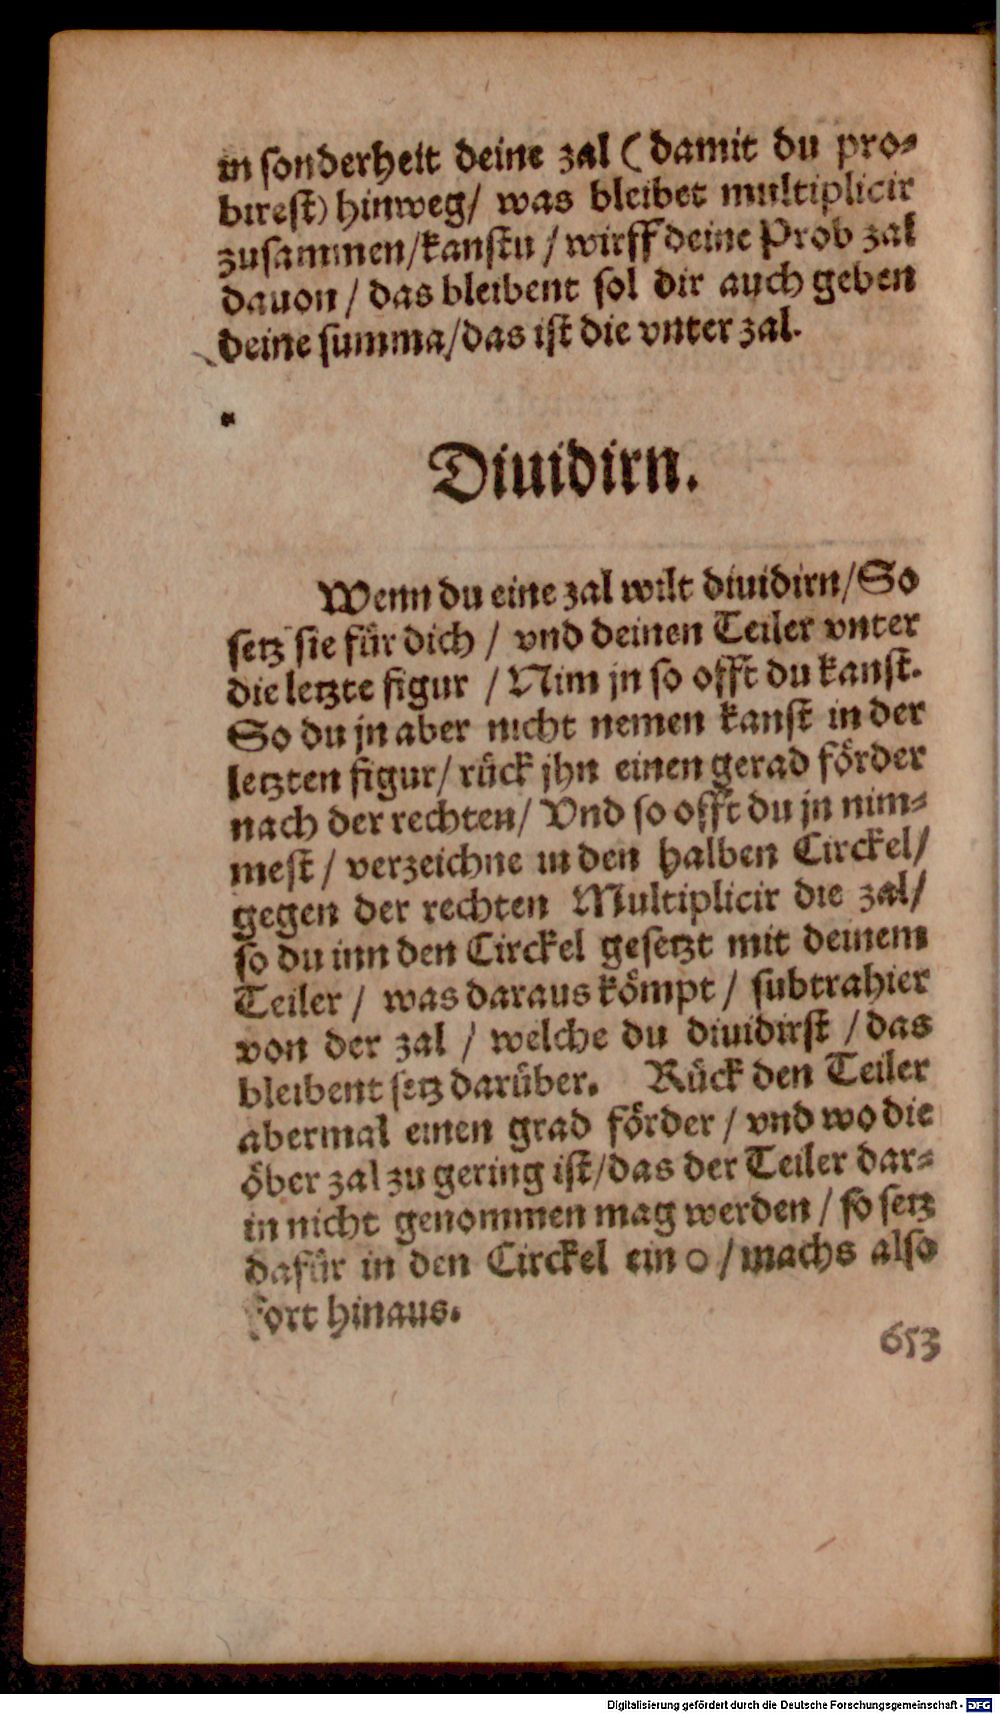 in sonderheit deine zal (damit du pro-
birest) hinweg/ was bleibet multiplicir
zusammen/kanstu / wirff deine Prob zal
dauon / das bleibent sol dir auch geben
deine summa/das ist die vnter zal.
Diuidirn.
Wenn du eine zal wilt diuidirn/So
setz sie für dich / vnd deinen Teiler vnter
die letzte figur / Nim jn so offt du kanst.
So du jn aber nicht nemen kanst in der
letzten figur/ rück jhn einen gerad förder
nach der rechten/ Vnd so offt du jn nim-
mest / verzeichne in den halben Circkel/
gegen der rechten Multiplicir die zal/
so du inn den Circkel gesetzt mit deinem
Teiler / was daraus kömpt / subtrahier
von der zal / welche du diuidirst / das
bleibent setz darüber. Rück den Teiler
abermal einen grad förder / vnd wo die
öber zal zu gering ist/das der Teiler dar-
in nicht genommen mag werden / so setz
dafür in den Circkel ein 0 / machs also
fort hinaus.
653
Digitalisierung gefördert durch die Deutsche Forschungsgemeinschaft - DFG